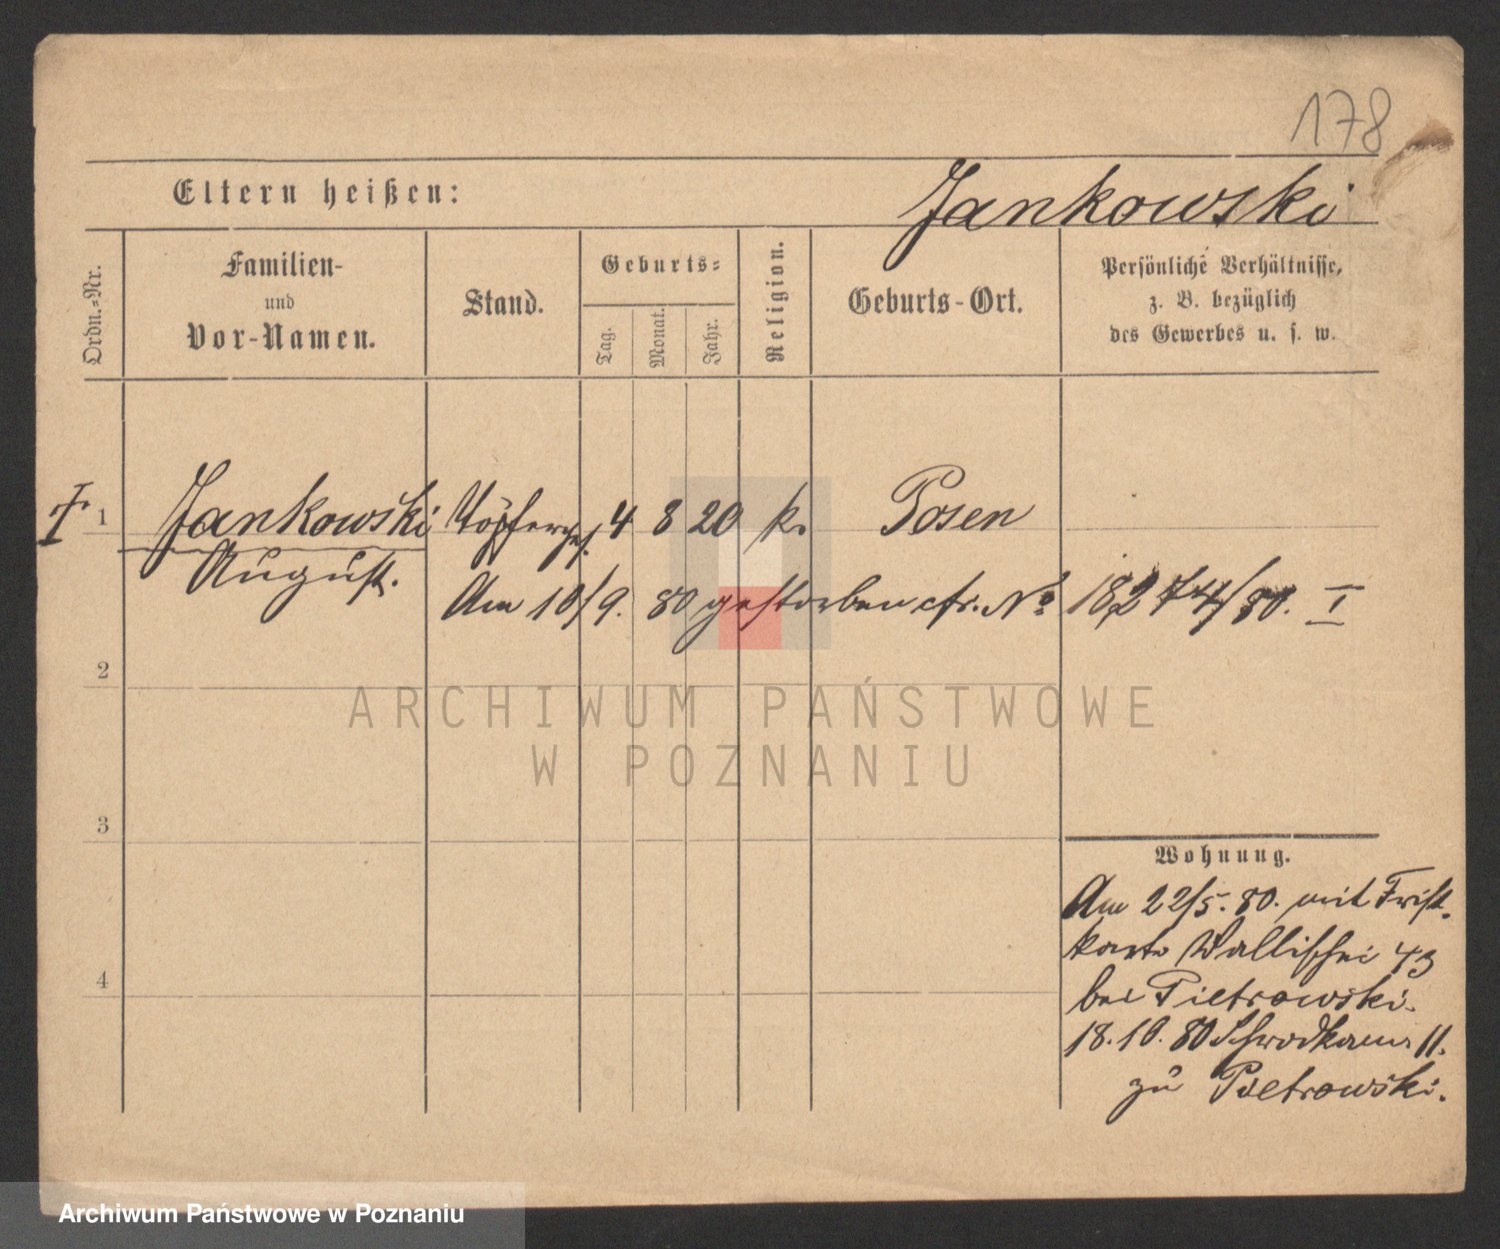 178
Eltern heißen:
Jankowski
Ordn.-Nr.
Familien-
und
Vor-Namen.
Stand.
Geburts-
Tag.
Monat.
Jahr.
Religion.
Geburts-Ort.
Persönliche Verhältnisse,
z. B. bezüglich
des Gewerbes u. s. w.
1 Jankowski Töpferges. 4 8 20 k. Posen
August.
Am 10/9. 80 gestorben cfr. No 18274/80. I
2
ARCHIWUM PAŃSTWOWE
W POZNANIU
3
Wohnung.
Am 22/5. 80. mit Frist-
karte Wallischei 43
4
bei Pietrowski.
18.10. 80 11.
zu Pietrowski.
Archiwum Państwowe w Poznaniu